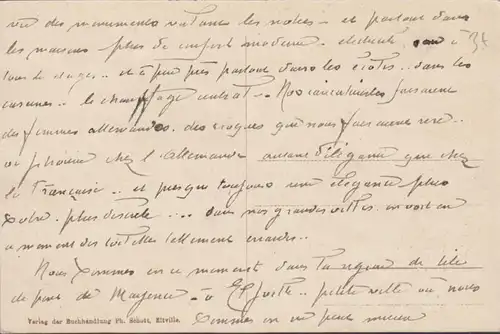 vu des monuments valant les nôtres - et partout dans
les maisons plus de confort moderne - électricité, eau à
tous les étages.. et à peu près partout dans les écoles.. dans les
casernes.. le chauffage central - Nos caricaturistes faisaient
des femmes allemandes, des croquis qui nous faisaient rire..
or j'trouve chez l'Allemande autant d'élégance que chez
la Française.. et presque toujours une élégance plus
sobre, plus discrète.... dans nos grandes villes on voit en
ce moment des toilettes tellement
Nous sommes en ce moment dans la région de
de Mayence - à petite ville où nous
sommes on ne peut mieux
Verlag der Buchhandlung Ph. Schott, Eltville.